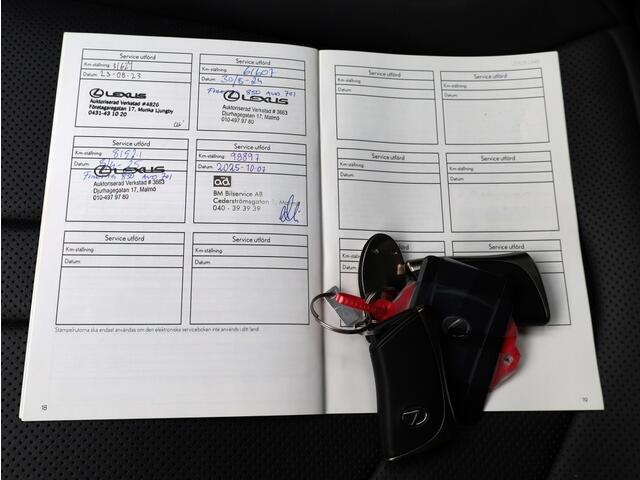 Service utförd
Km-ställning:
Datum: 23-08-23
LEXUS
Auktoriserad Verkstad #4826
Företagaregatan 17, Munka Ljungby
0431-43 10 20
Service utförd
Km-ställning: 61607
Datum: 30/5-24
LEXUS
Auktoriserad Verkstad # 3663
Djurhagegatan 17, Malmö
010-497 97 80
Service utförd
Km-ställning: 81521
Datum:
LEXUS
Auktoriserad Verkstad # 3663
Djurhagegatan 17, Malmö
010-497 97 80
Service utförd
Km-ställning: 98897
Datum: 2025-10-07
ad
BM Bilservice AB
Cederströmsgatan
040 - 39 39 39
Service utförd
Km-ställning:
Datum:
Service utförd
Km-ställning:
Datum:
Stämpelrutorna ska endast användas om den elektroniska serviceboken inte används i ditt land.
18
Service utförd
Km-ställning:
Datum:
Service utförd
Km-ställning:
Datum:
Service utförd
Km-ställning:
Datum:
Service utförd
Km-ställning:
Datum:
Service utförd
Km-ställning:
Datum:
Service utförd
19